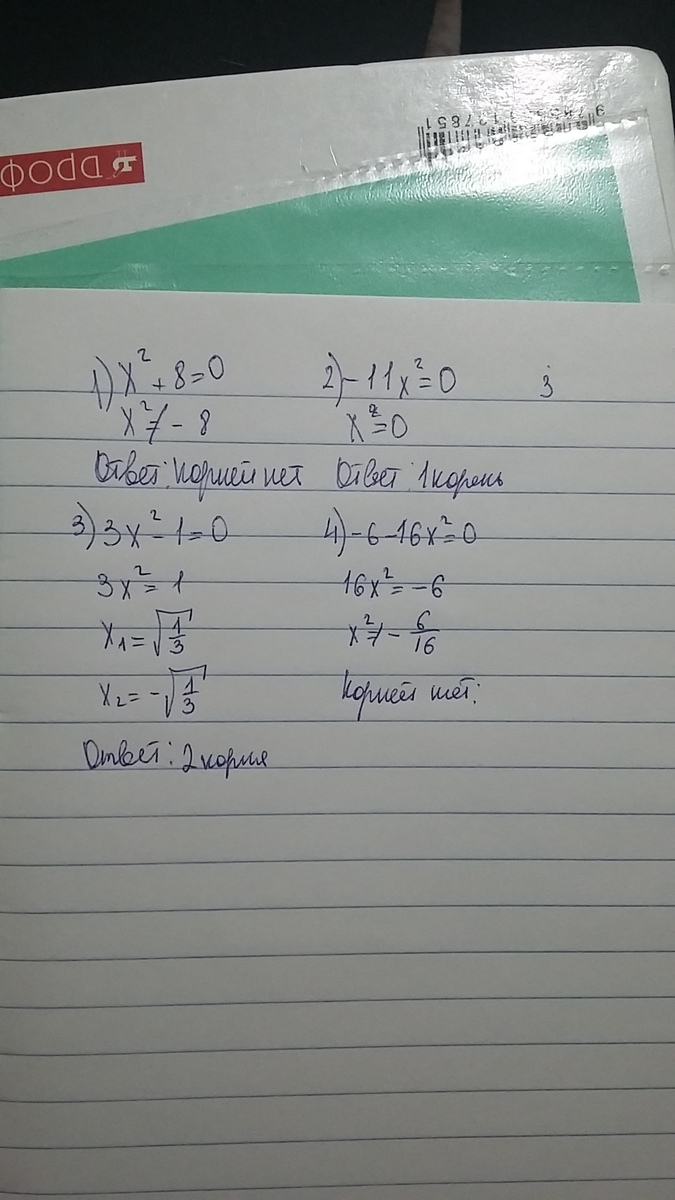 1) x² + 8 = 0
x² ≠ - 8
Ответ: корней нет
2) - 11x² = 0
x² = 0
Ответ: 1 корень
3) 3x² - 1 = 0
3x² = 1
x₁ = √(1/3)
x₂ = - √(1/3)
Ответ: 2 корня
4) - 6 - 16x² = 0
16x² = - 6
x² ≠ - 6/16
Корней нет: